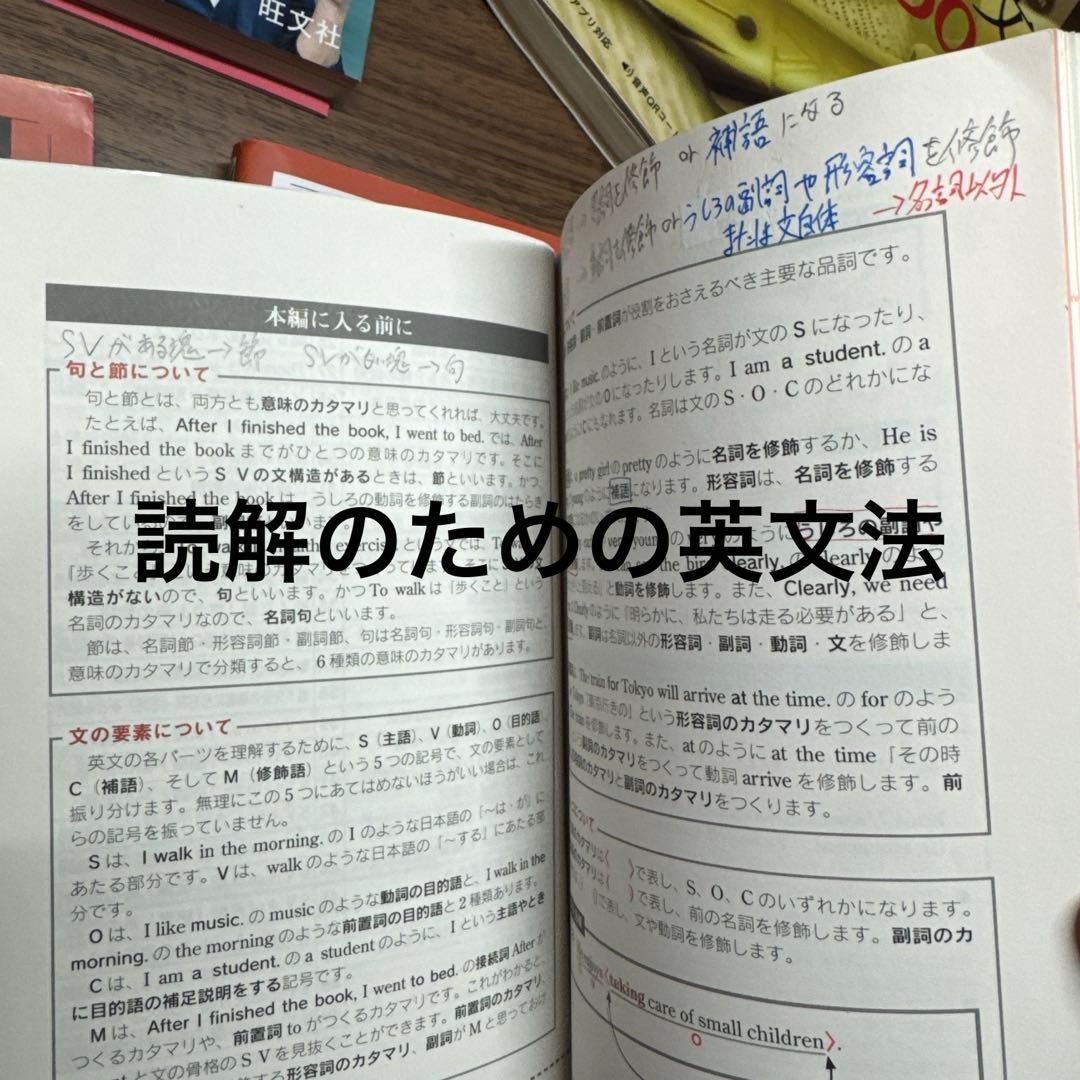 旺文社
アプリ対応
音声QRコー
or 補語 になる
を修飾 or うしろの副詞や形容詞を修飾
または文自体
→名詞以外
本編に入る前に
SVがある塊→節 SVがない塊→句
句と節について
句と節とは、両方とも意味のカタマリと思ってくれれば、大丈夫です。
たとえば、After I finished the book, I went to bed. では、After
I finished the book までがひとつの意味のカタマリです。そこに
I finished という S V の文構造があるときは、節といいます。かつ、
After I finished the book は、うしろの動詞を修飾する副詞のはたらき
をしている
それか
読解のための英文法
構造がないので、句といいます。かつ To walk は「歩くこと」という
名詞のカタマリなので、名詞句といいます。
節は、名詞節・形容詞節・副詞節、句は名詞句・形容詞句・副詞句と、
意味のカタマリで分類すると、6種類の意味のカタマリがあります。
文の要素について
英文の各パーツを理解するために、S（主語）、V（動詞）、O（目的語）、
C（補語）、そして M（修飾語）という5つの記号で、文の要素として
振り分けます。無理にこの5つにあてはめないほうがいい場合は、これ
らの記号を振っていません。
S は、I walk in the morning. の I のような日本語の「〜は・が」に
あたる部分です。V は、walk のような日本語の「〜する」にあたる部
分です。
O は、I like music. の music のような動詞の目的語と、I walk in the
morning. の the morning のような前置詞の目的語と2種類あります。
C は、I am a student. の a student のように、I という主語やとき
に目的語の補足説明をする記号です。
M は、After I finished the book, I went to bed. の接続詞 After が
つくるカタマリや、前置詞 to がつくるカタマリです。これがわかると、
と文の骨格の S V を見抜くことができます。前置詞のカタマリ、
する形容詞のカタマリ、副詞が M と思っておけ
副詞・前置詞が役割をおさえるべき主要な品詞です。
like music. のように、I という名詞が文の S になったり、
が文の O になったりします。I am a student. の a
にもなれます。名詞は文の S・O・C のどれかにな
a pretty girl の pretty のように名詞を修飾するか、He is
young のように補語になります。形容詞は、名詞を修飾する
very young の very のようにうしろの副詞や
the bird clearly. の clearly のよう
と動詞を修飾します。また、Clearly, we need
Clearly のように「明らかに、私たちは走る必要がある」と、
副詞は名詞以外の形容詞・副詞・動詞・文を修飾しま
The train for Tokyo will arrive at the time. の for のよう
「東京行きの」という形容詞のカタマリをつくって前の
train を修飾します。また、at のように at the time「その時
副詞のカタマリをつくって動詞 arrive を修飾します。前
のカタマリと副詞のカタマリをつくります。
について
のカタマリは〈 〉で表し、S、O、C のいずれかになります。
のカタマリは( )で表し、前の名詞を修飾します。副詞のカ
で表し、文や動詞を修飾します。
enjoys 〈taking care of small children〉.
O